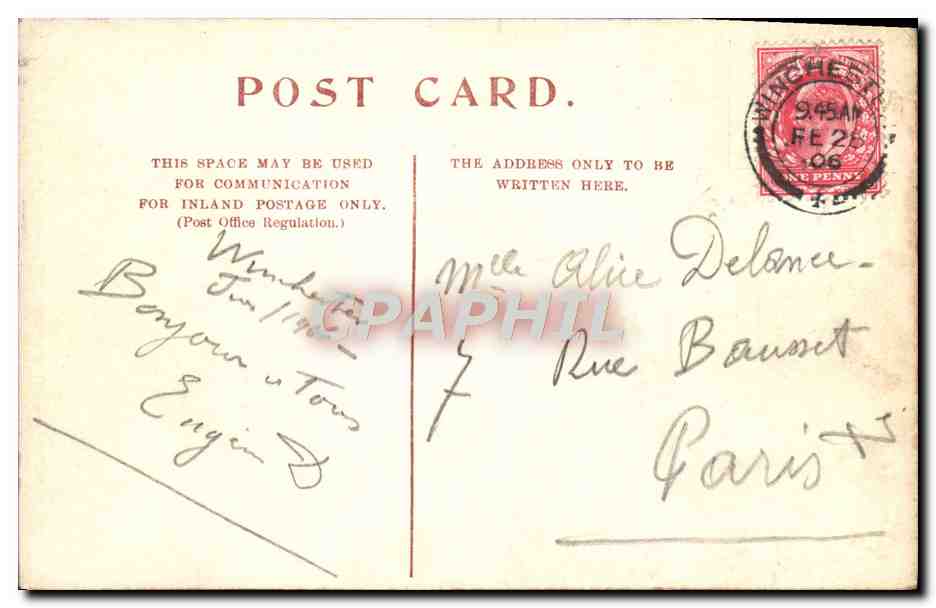 POST CARD.
THIS SPACE MAY BE USED
FOR COMMUNICATION
FOR INLAND POSTAGE ONLY.
(Post Office Regulation.)
THE ADDRESS ONLY TO BE
WRITTEN HERE.
WINCHESTER
9.45AM
FE 26
06
ONE PENNY
Winchester
Bonjour a Tous
Eugene D
Mlle Alice Delance
7 Rue Bausset
Paris
CPARPHIL